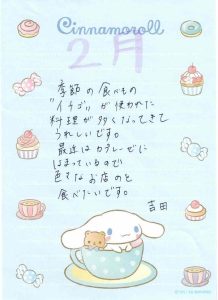 Cinnamoroll
2月
季節の食べもの
"イチゴ"が使われた
料理が多くなってきて
うれしいです。
最近はカヌレ・ゼに
はまっているので
色々なお店のを
食べたいです。
吉田